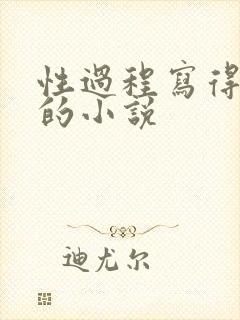 性過程寫得
的小説
迪尤尔